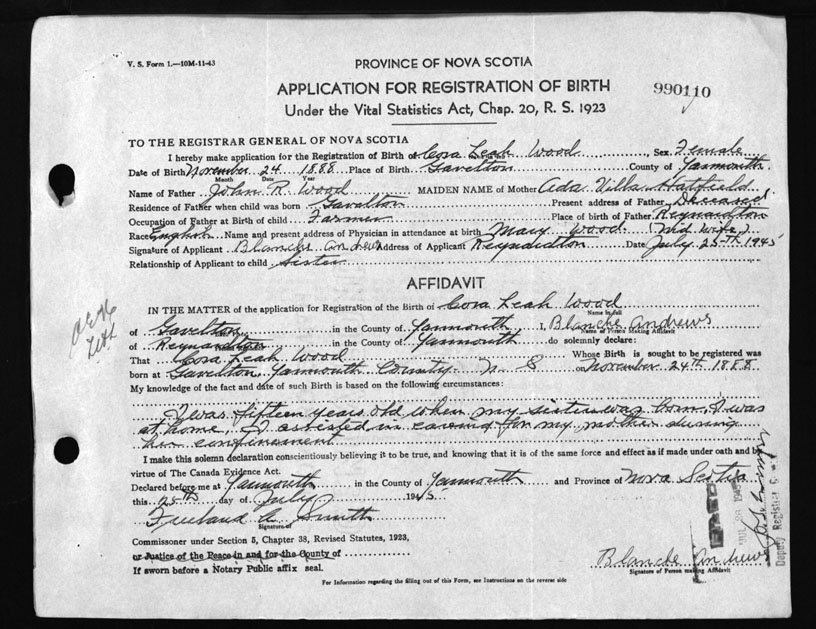 V. S. Form 1.—10M-11-43
PROVINCE OF NOVA SCOTIA
APPLICATION FOR REGISTRATION OF BIRTH
990110
Under the Vital Statistics Act, Chap. 20, R. S. 1923
TO THE REGISTRAR GENERAL OF NOVA SCOTIA
I hereby make application for the Registration of Birth of Cora Leah Wood Sex Female
Date of Birth November 24 1888 Place of Birth Gavelton County of Yarmouth.
Month Date Year
Name of Father John R. Wood MAIDEN NAME of Mother Ada Hatfield
Residence of Father when child was born Gavelton Present address of Father Deceased
Occupation of Father at Birth of child Farmer Place of birth of Father Reynardton
Race English Name and present address of Physician in attendance at birth Mary Wood. (Mid Wife)
Signature of Applicant Blanche Andrews Address of Applicant Reynardton Date July 25TH 1945
Relationship of Applicant to child Sister
AFFIDAVIT
IN THE MATTER of the application for Registration of the Birth of Cora Leah Wood
Name in full
of Gavelton in the County of Yarmouth I, Blanche Andrews
Name of Person Making Affidavit
of Reynardton in the County of Yarmouth do solemnly declare:
That Cora Leah Wood Whose Birth is sought to be registered was
born at Gavelton Yarmouth County N S on November 24th 1888
My knowledge of the fact and date of such Birth is based on the following circumstances:
I was fifteen years old when my sister was born, I was
at home. I assisted in caring for my mother during
her confinement
I make this solemn declaration conscientiously believing it to be true, and knowing that it is of the same force and effect as if made under oath and by
virtue of The Canada Evidence Act.
Declared before me at Yarmouth in the County of Yarmouth and Province of Nova Scotia
this 25th day of July 1945
Freeland A. Smith
Signature of
Commissioner under Section 5, Chapter 38, Revised Statutes, 1923,
or Justice of the Peace in and for the County of
If sworn before a Notary Public affix seal.
Blanche Andrews
Signature of Person making Affidavit
For Information regarding the filling out of this Form, see Instructions on the reverse side
FILED
Deputy Registrar